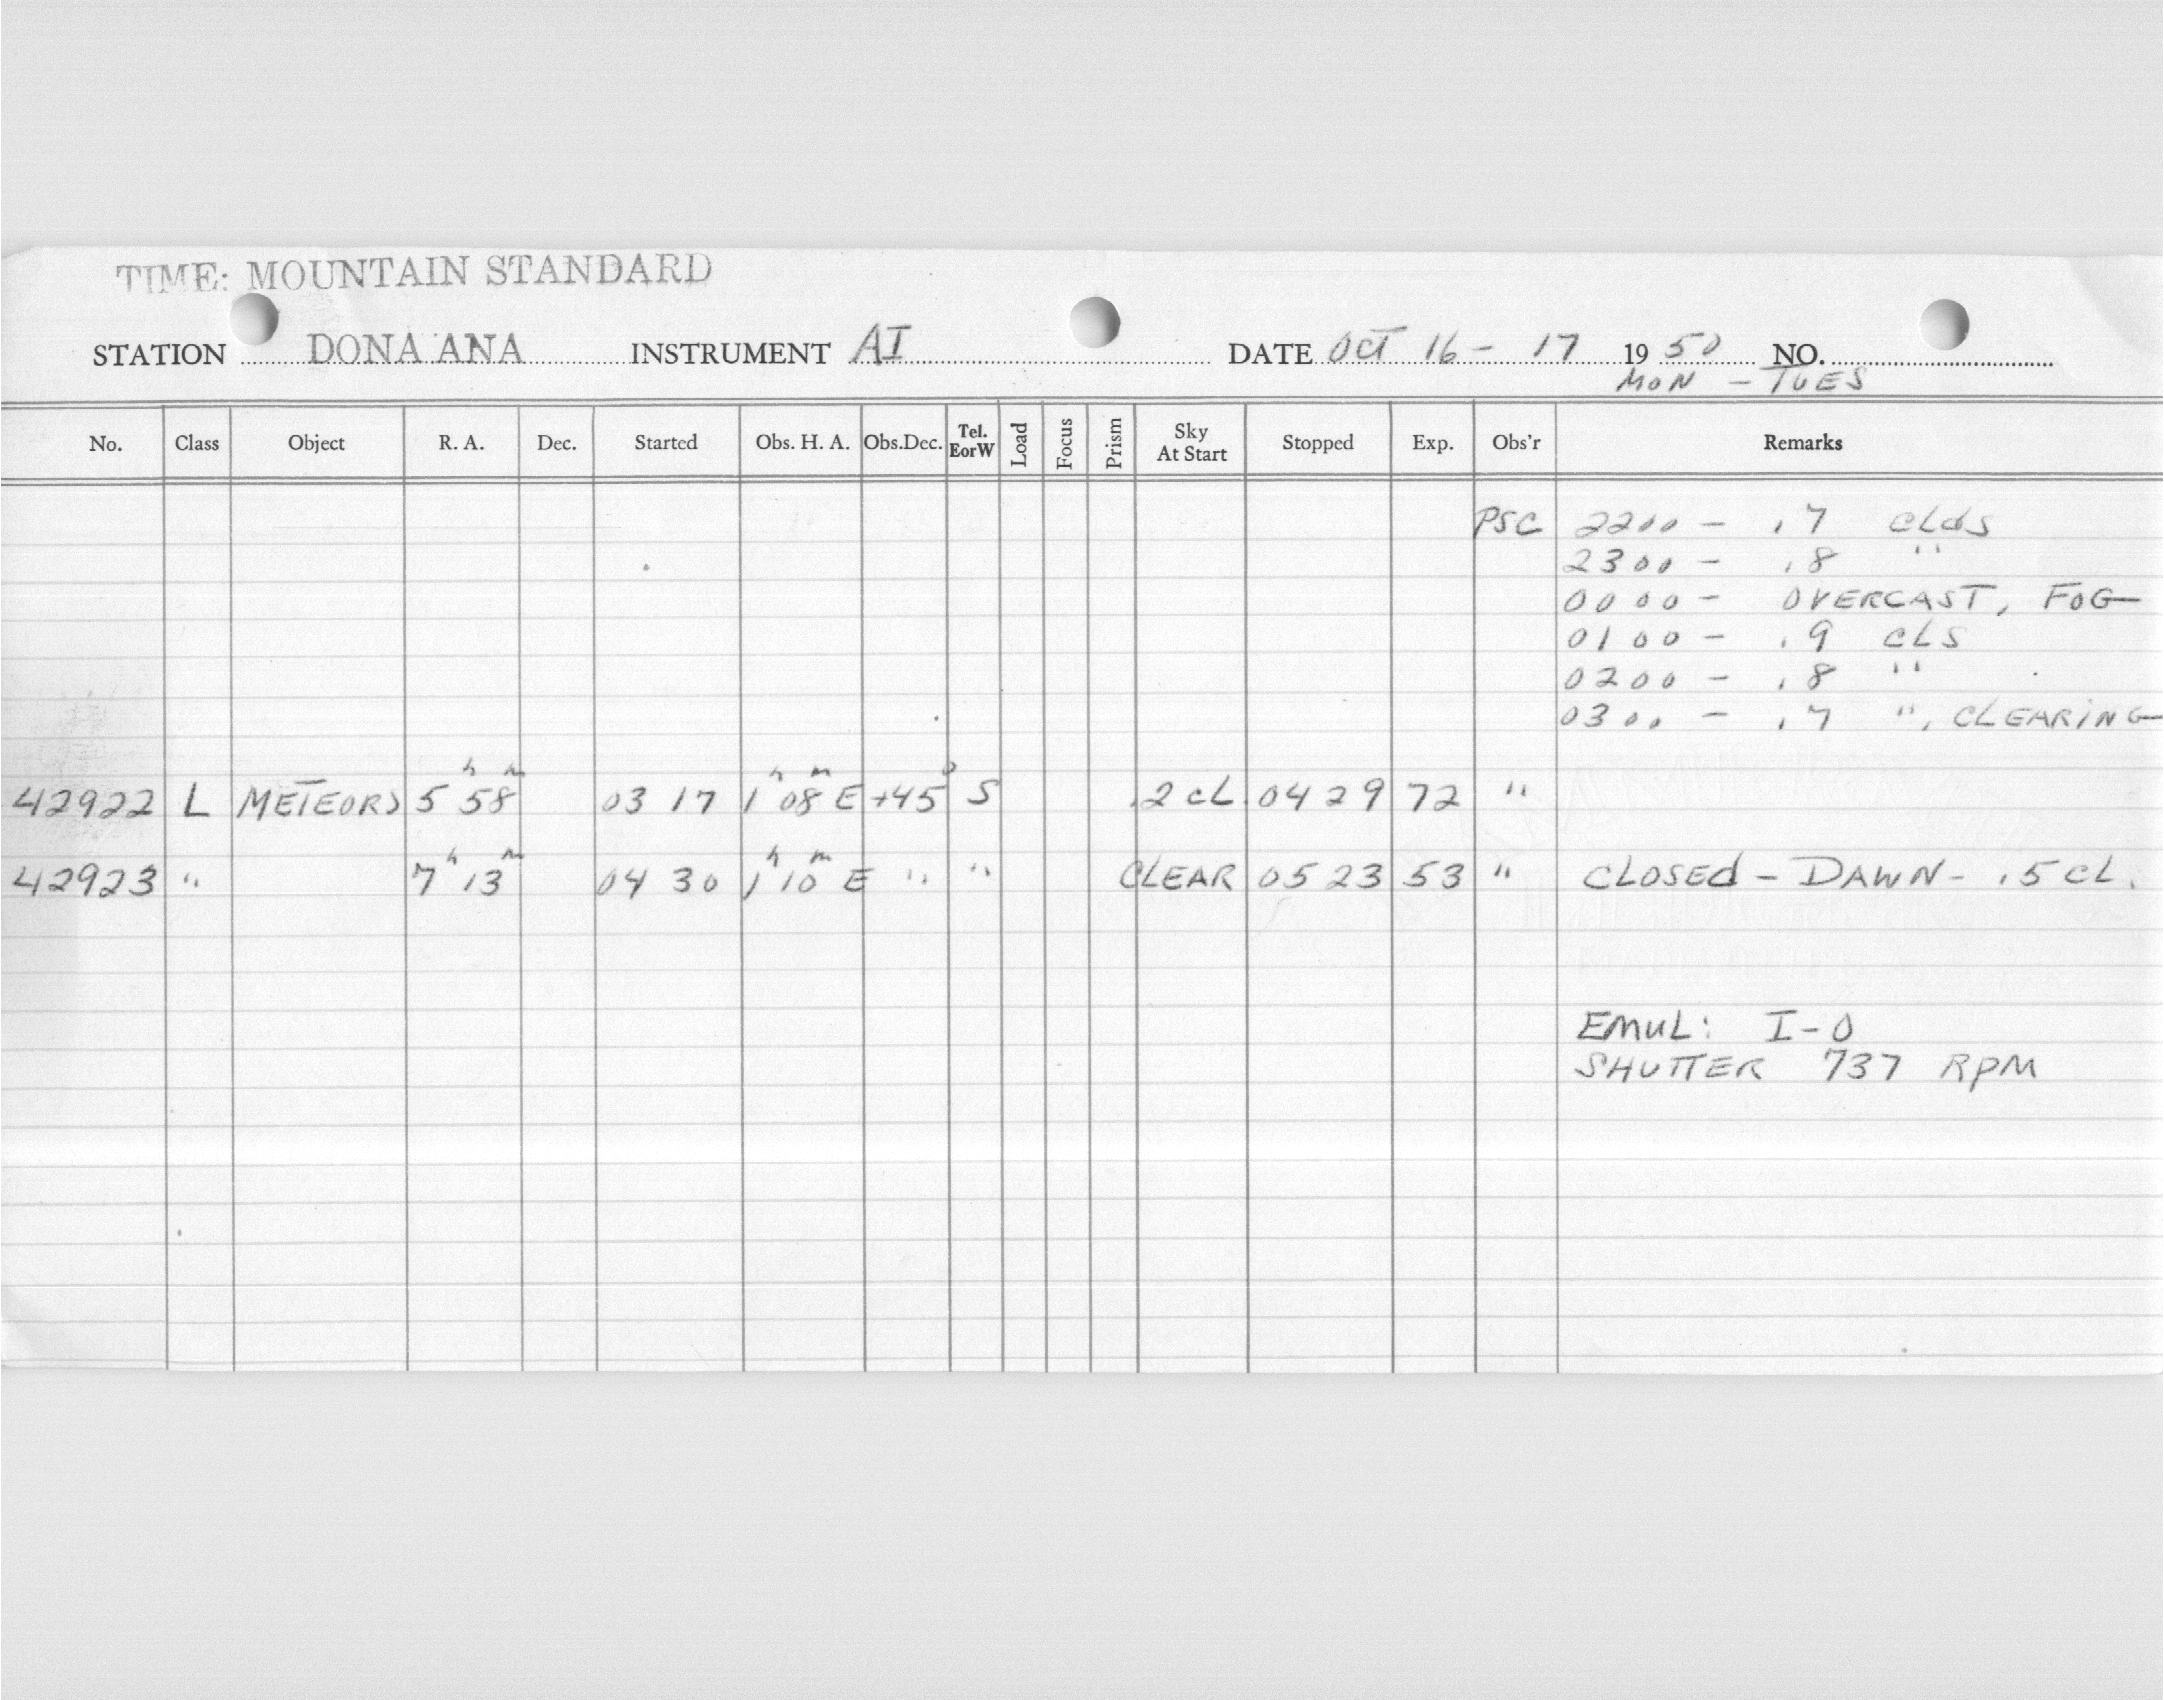 TIME: MOUNTAIN STANDARD
STATION DONA ANA INSTRUMENT AI DATE OCT 16 - 17 19 50 NO.
MON - TUES
No. Class Object R. A. Dec. Started Obs. H. A. Obs.Dec. Tel. EorW Load Focus Prism Sky At Start Stopped Exp. Obs'r Remarks
PSC 2200 - .7 CLdS
2300 - .8 "
0000 - OVERCAST, FOG
0100 - .9 CLS
0200 - .8 "
0300 - .7 ", CLEARING
42922 L METEORS 5h 58m 03 17 1h 08m E +45° S .2 CL. 0429 72 "
42923 " 7h 13m 04 30 1h 10m E " " CLEAR 0523 53 " CLOSED - DAWN - .5 CL.
EMUL: I-O
SHUTTER 737 RPM